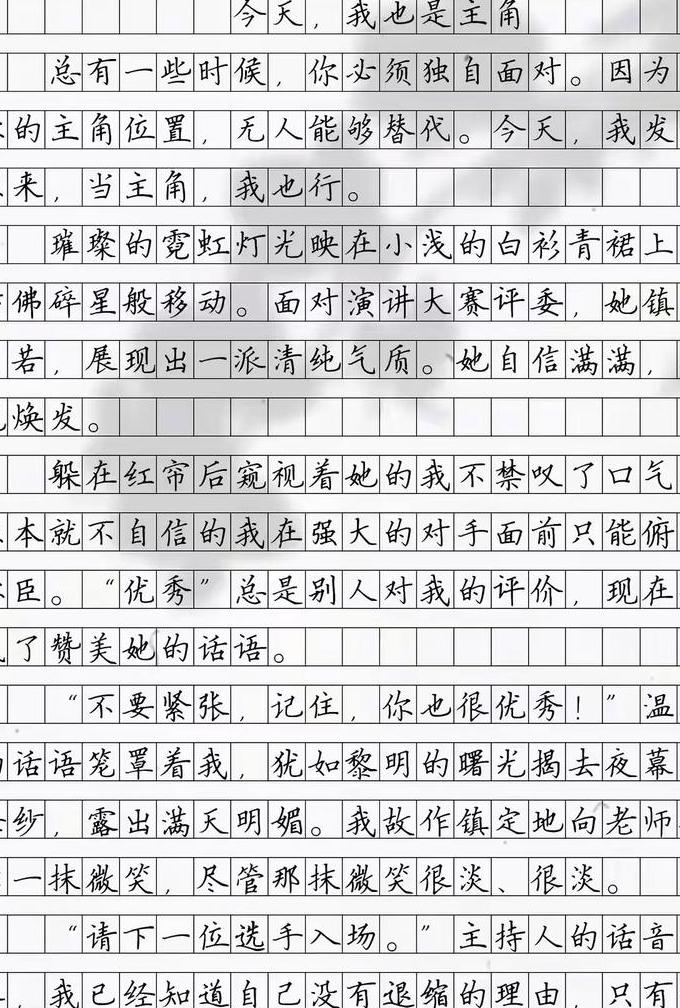 今天，我也是主角
总有一些时候，你必须独自面对。因为
的主角位置，无人能够替代。今天，我发
来，当主角，我也行。
璀璨的霓虹灯光映在小浅的白衫青裙上
佛碎星般移动。面对演讲大赛评委，她镇
若，展现出一派清纯气质。她自信满满，
焕发。
躲在红帘后窥视着她的我不禁叹了口气
本就不自信的我在强大的对手面前只能俯
臣。“优秀”总是别人对我的评价，现在
了赞美她的话语。
“不要紧张，记住，你也很优秀！”温
话语笼罩着我，犹如黎明的曙光揭去夜幕
纱，露出满天明媚。我故作镇定地向老师
一抹微笑，尽管那抹微笑很淡、很淡。
“请下一位选手入场。”主持人的话音
，我已经知道自己没有退缩的理由，只有